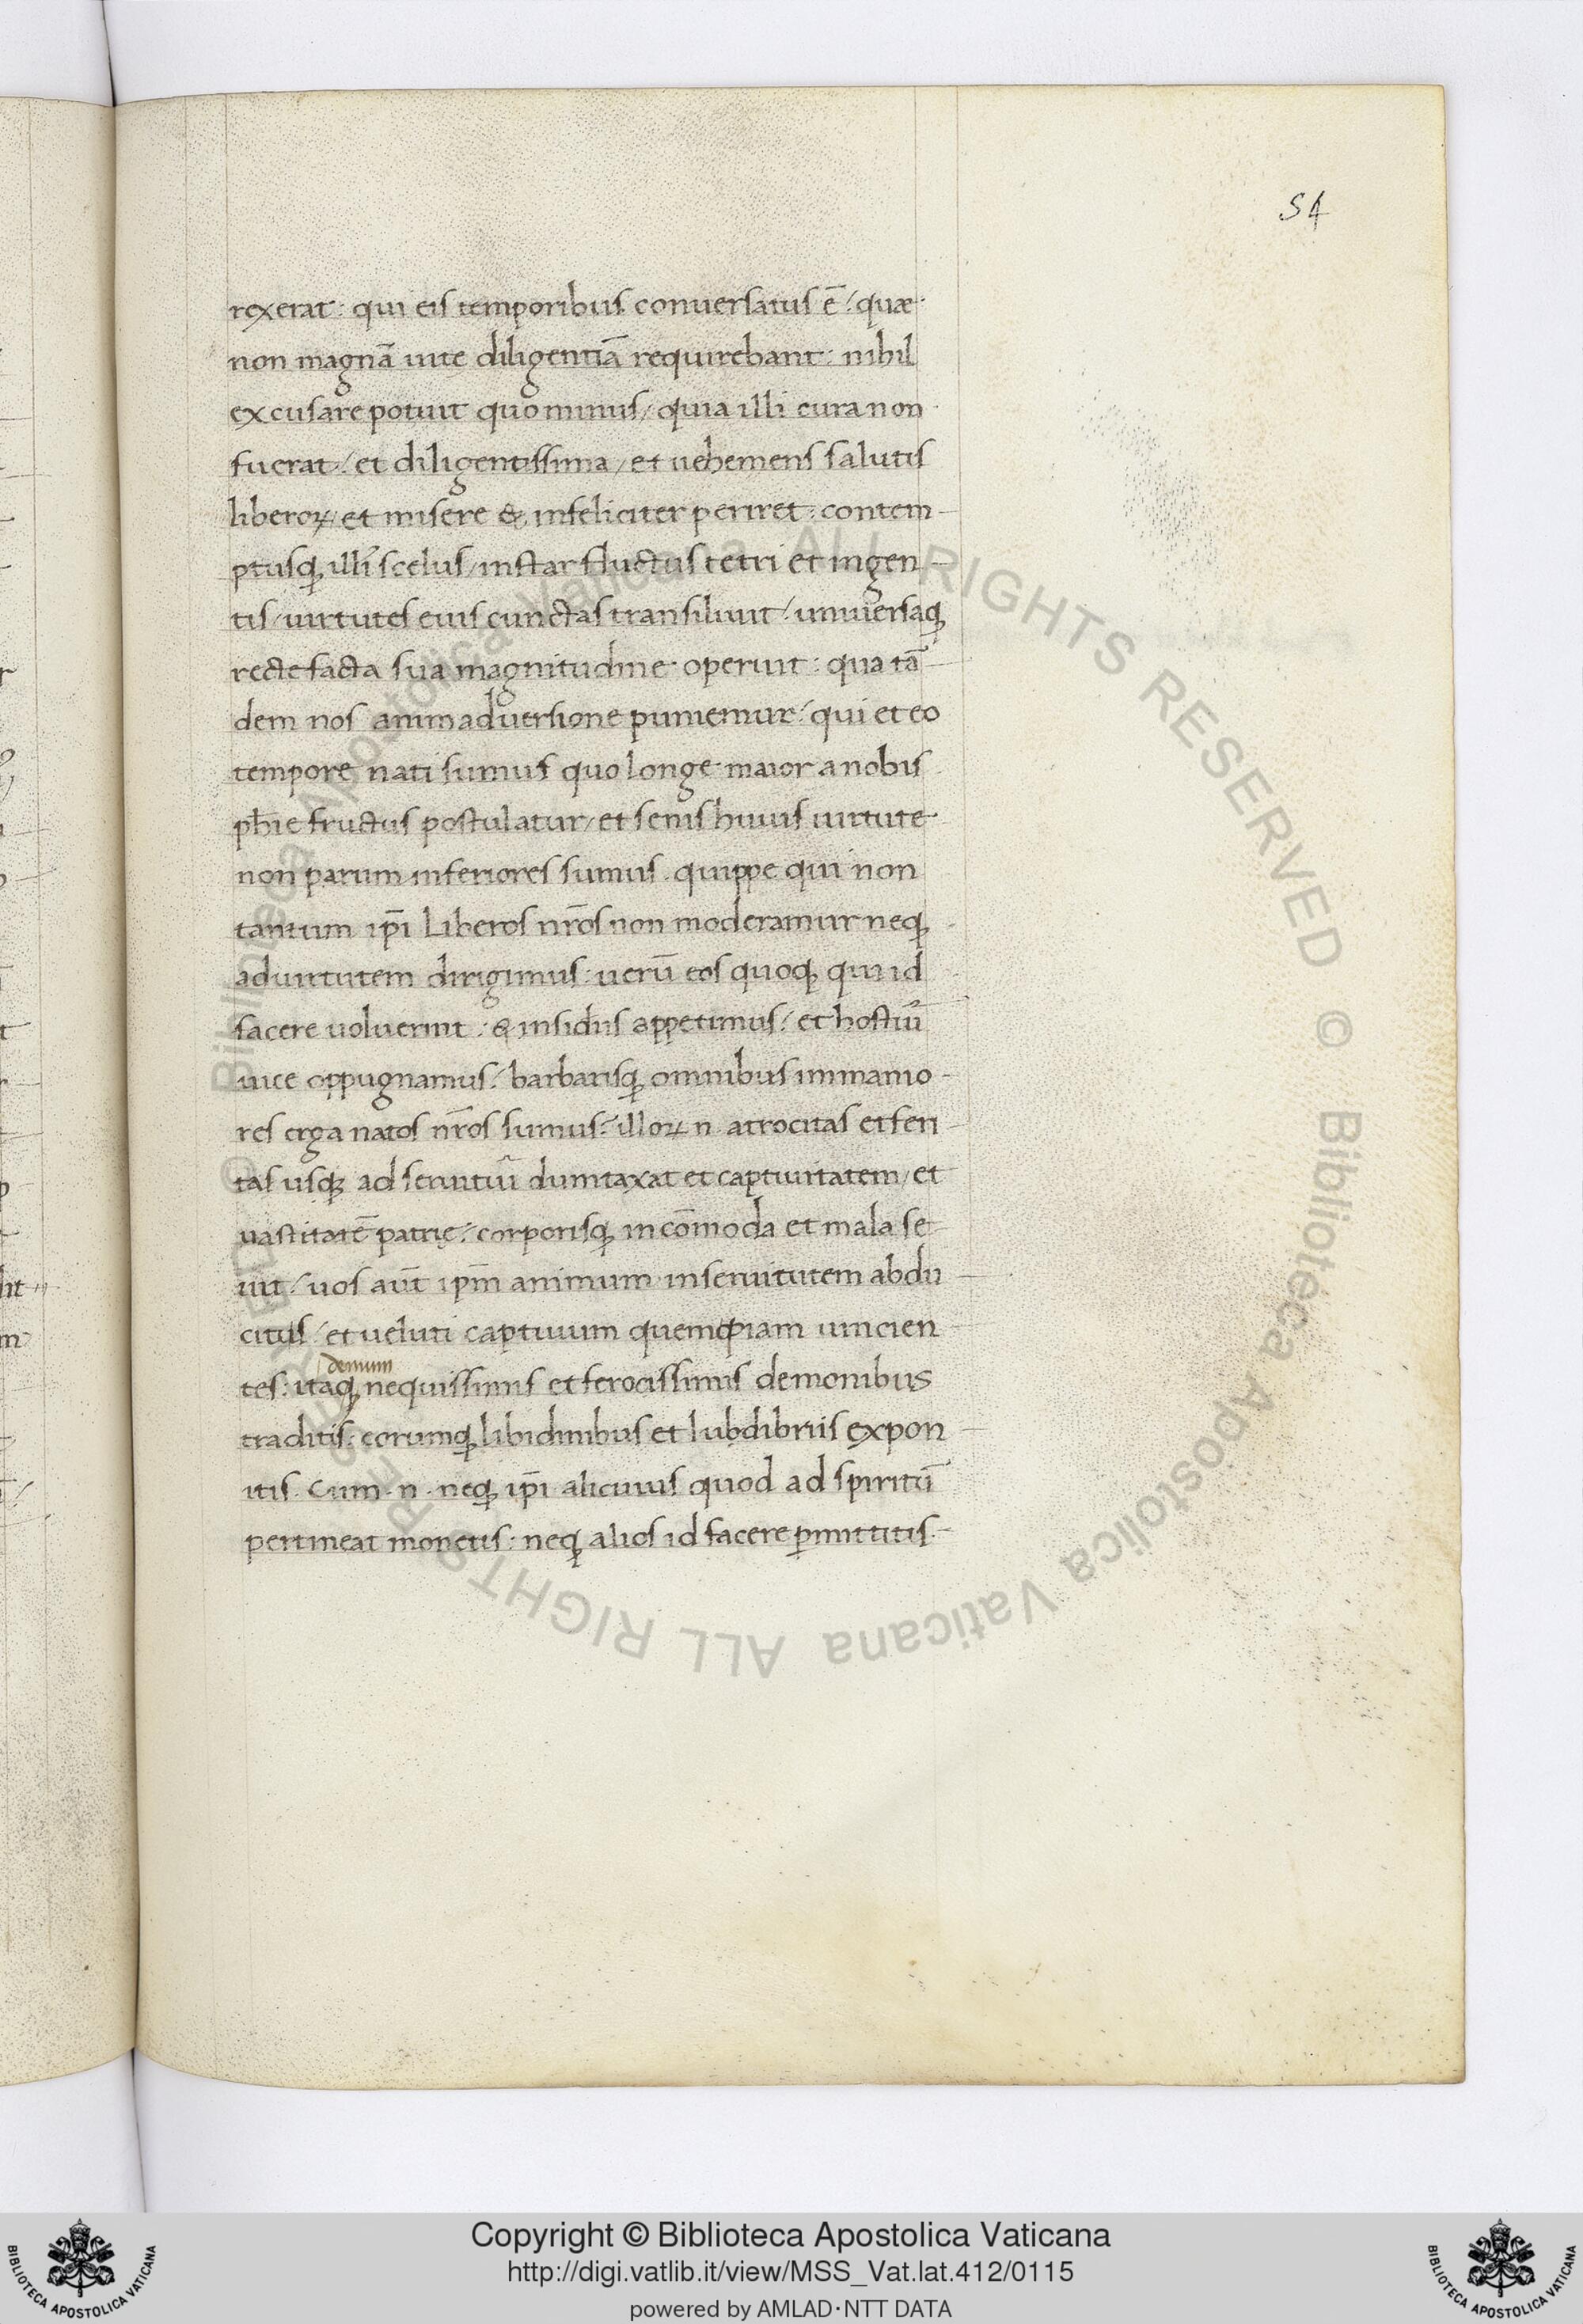 54
rexerat: qui eis temporibus conuersatus ē/ quæ
non magnā uitę diligentiā requirebant: nihil
excusare potuit quo minus/ quia illi cura non
fuerat/ et diligentissima/ et uehemens salutis
liberoꝝ/ et misere & infeliciter periret: contem-
ptusqꝫ illi scelus/ instar fluctus tetri et ingen-
tis/ uirtutes eius cunctas transiliuit/ uniuersaqꝫ
recte facta sua magnitudine operuit: qua tā
dem nos animaduersione puniemur/ qui et eo
tempore nati sumus quo longe maior a nobis
ph̄ie fructus postulatur/ et senis huius uirtute
non parum inferiores sumus. quippe qui non
tantum ip̄i liberos nr̄os non moderamur neqꝫ
ad uirtutem dirigimus: uerū eos quoqꝫ qui id
facere uoluerint: & insidiis appetimus/ et hostiū
uice oppugnamus/ barbarisqꝫ omnibus immanio-
res erga natos nr̄os sumus: illoꝝ .n. atrocitas et feri
tas usqꝫ ad seruitiū dumtaxat et captiuitatem/ et
uastitatē patrię/ corporisqꝫ incōmoda et mala sę
uit/ uos aūt ip̄m animum in seruitutem abdu
citis/ et ueluti captiuum quempiam uincien
demum
tes: itaqꝫ nequissimis et ferocissimis demonibus
traditis: eorumqꝫ libidinibus et ludibriis expon
itis. Cum .n. neqꝫ ip̄i alicuius quod ad spiritū
pertineat monetis: neqꝫ alios id facere ꝑmittitis.
© Biblioteca Apostolica Vaticana ALL RIGHTS RESERVED © Biblioteca Apostolica Vaticana ALL RIGHTS RESERVED
Copyright © Biblioteca Apostolica Vaticana
http://digi.vatlib.it/view/MSS_Vat.lat.412/0115
powered by AMLAD·NTT DATA
BIBLIOTECA APOSTOLICA VATICANA
BIBLIOTECA APOSTOLICA VATICANA